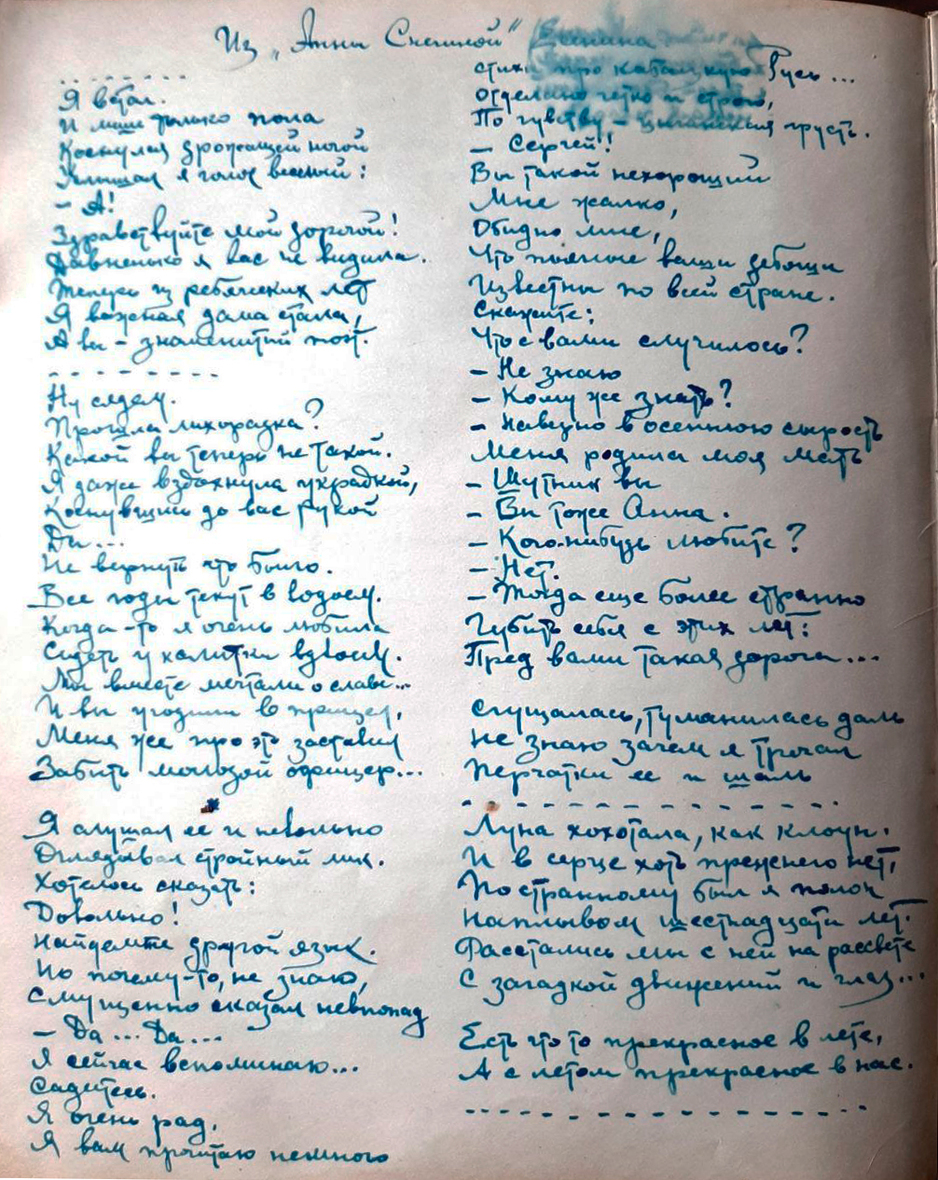 Из „Анны Снегиной“ Есенина
- - - - - - - -
Я встал.
И лишь только пола
Коснулся дрожащей ногой
Услышал я голос веселый:
- А!
Здравствуйте мой дорогой!
Давненько я вас не видала.
Теперь из ребяческих лет
Я важная дама стала,
А вы - знаменитый поэт.
- - - - - - - - -
Ну сядем.
Прошла лихорадка?
Какой вы теперь не такой.
Я даже вздохнула украдкой,
Коснувшись до вас рукой
Да...
Не вернуть что было.
Все годы текут в водоем.
Когда-то я очень любила
Сидеть у калитки вдвоем.
Мы вместе мечтали о славе...
И вы угодили в прицел,
Меня же про это заставил
Забыть молодой офицер...
Я слушал ее и невольно
Оглядывал стройный лик.
Хотелось сказать:
Довольно!
Найдемте другой язык.
Но почему-то, не знаю,
Смущенно сказал невпопад
- Да... Да...
Я сейчас вспоминаю...
Садитесь.
Я очень рад.
Я вам прочитаю немного
стихи про кабацкую Русь...
Отделано четко и строго,
По чувству - цыганская грусть.
- Сергей!
Вы такой нехороший
Мне жалко,
Обидно мне,
Что пьяные ваши дебоши
Известны по всей стране.
Скажите:
Что с вами случилось?
- Не знаю
- Кому же знать?
- Наверно в осеннюю сырость
Меня родила моя мать
- Шутник вы
- Вы тоже Анна.
- Кого-нибудь любите?
- Нет.
- Тогда еще более странно
Губить себя с этих лет:
Пред вами такая дорога...
Сгущалась, туманилась даль
Не знаю зачем я трогал
Перчатки ее и шаль
- - - - - - - - - - - - - -
Луна хохотала, как клоун.
И в серце хоть прежнего нет,
По странному был я полон
Наплывом шестнадцати лет.
Расстались мы с ней на рассвете
С загадкой движений и глаз...
Есть что то прекрасное в лете,
А с летом прекрасное в нас.
- - - - - - - - - - - - - - - - -